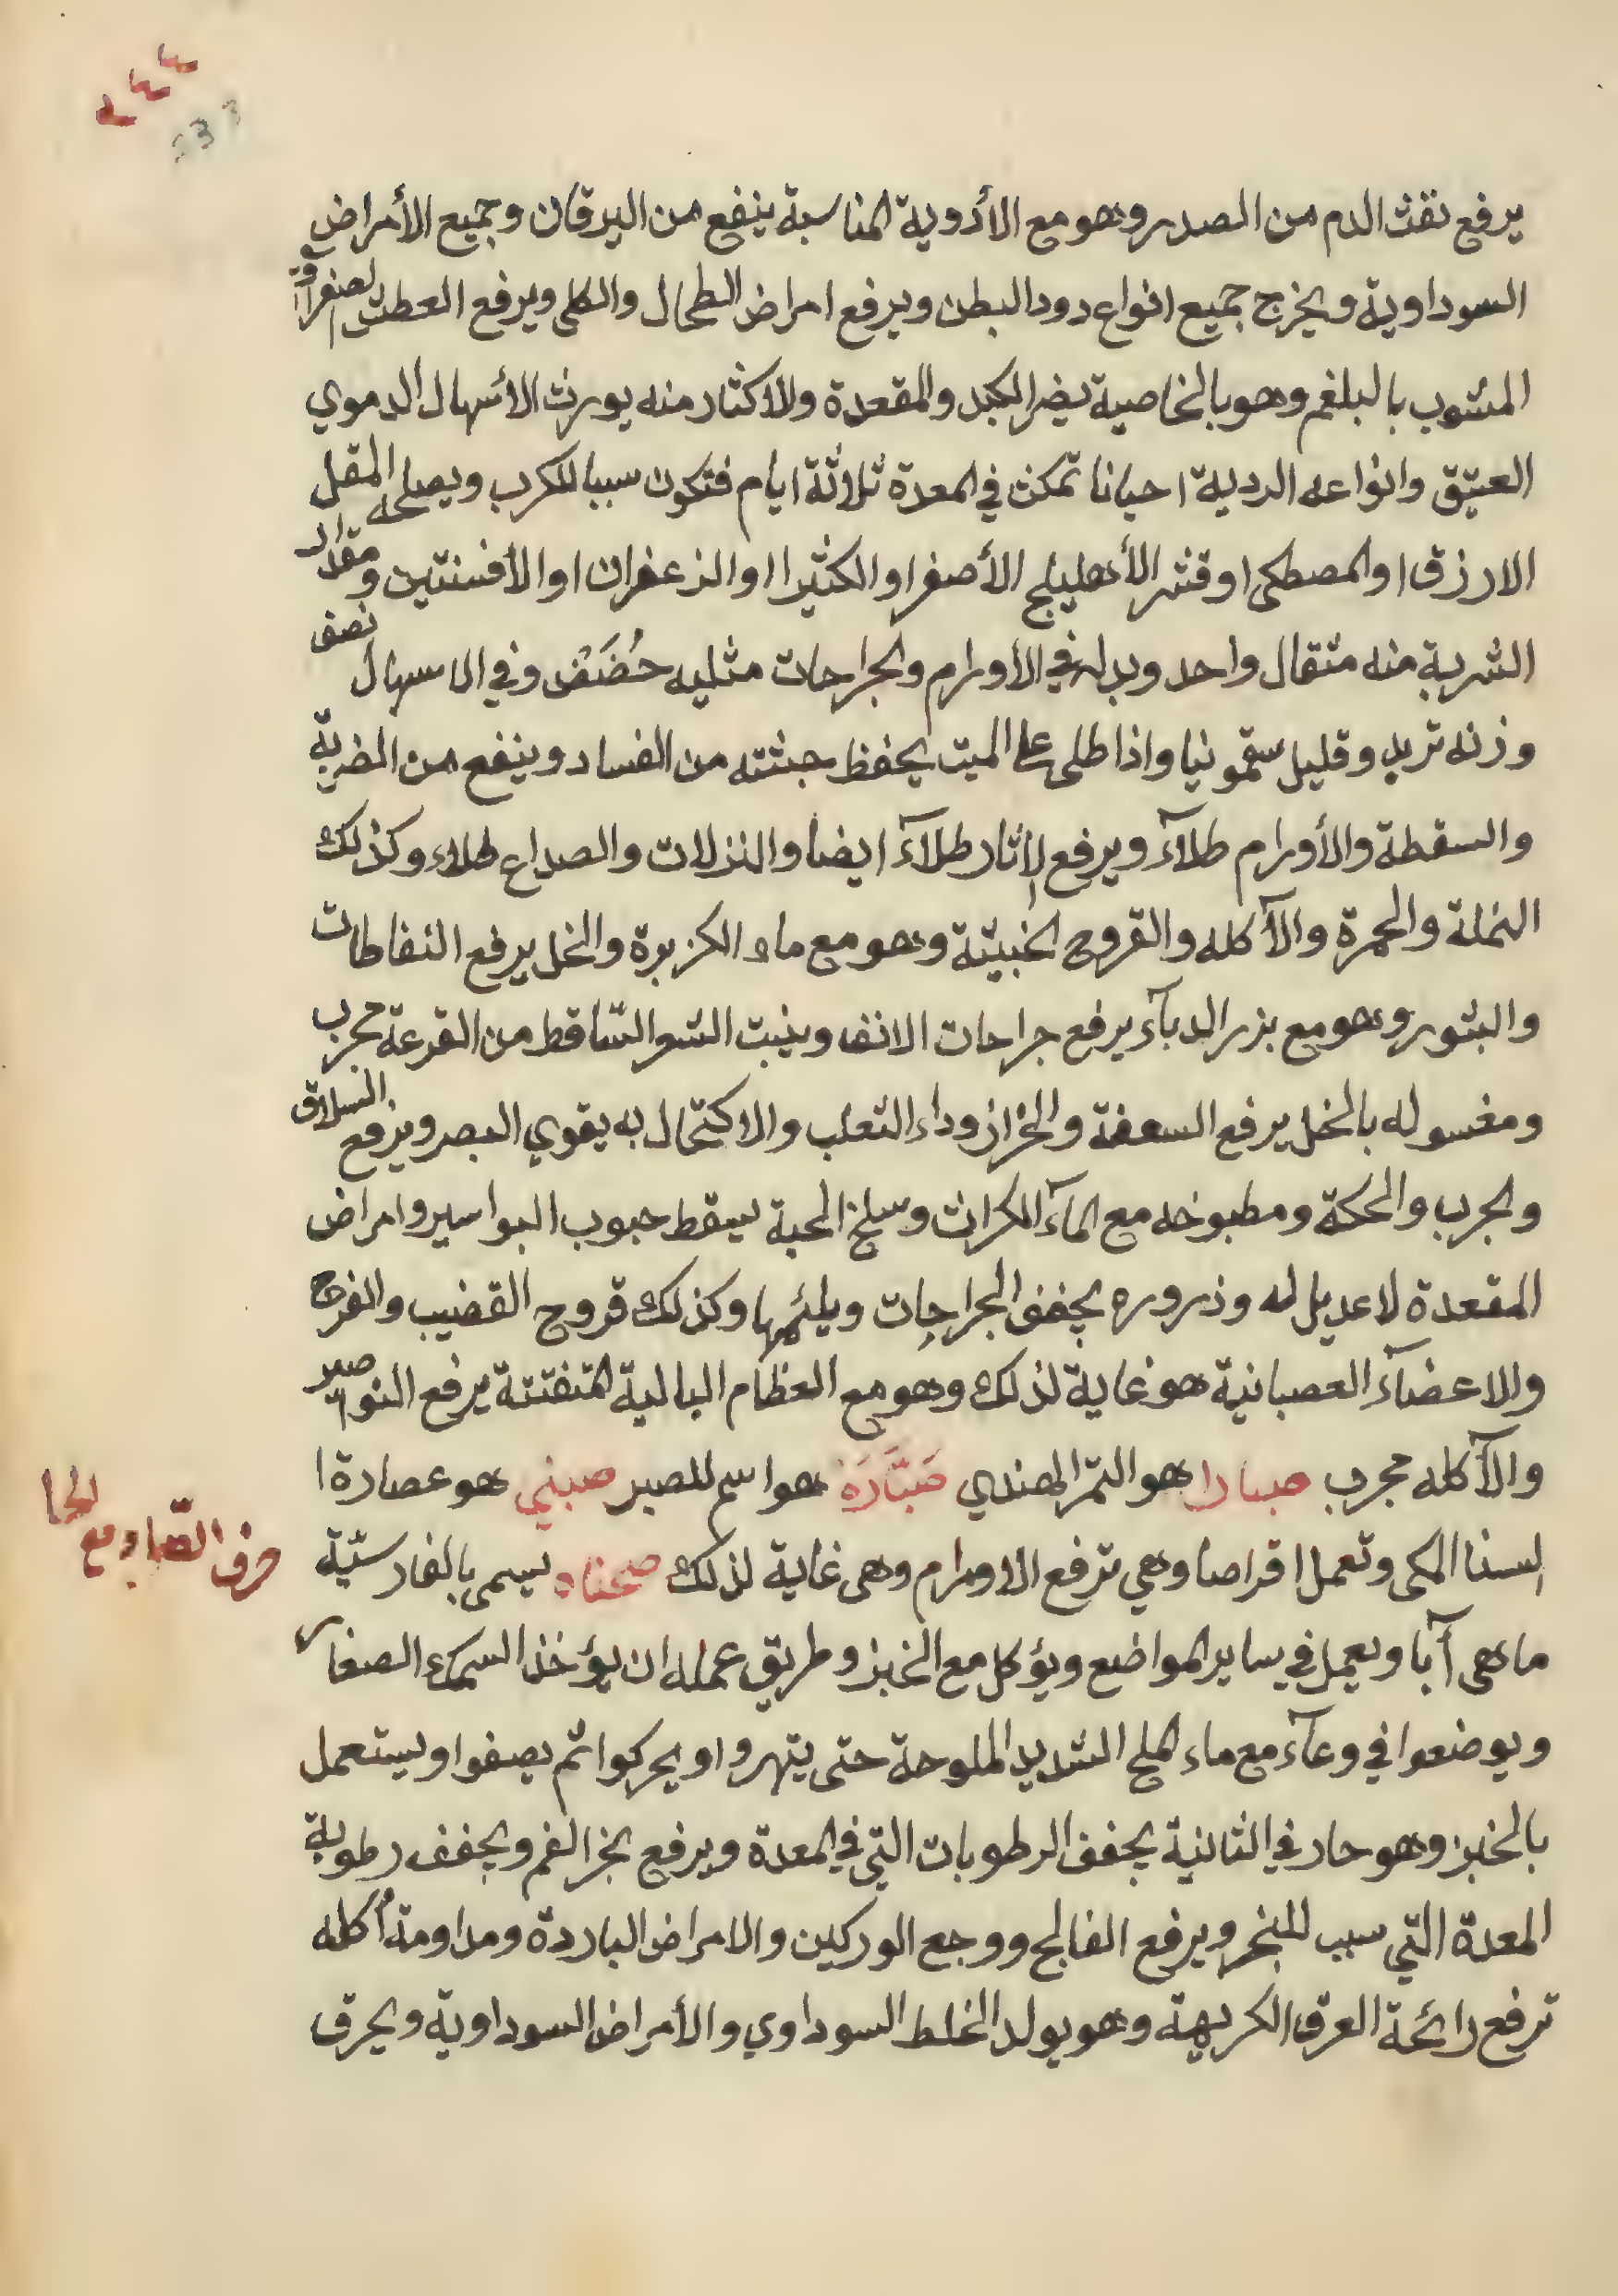 ٢٤٤
233
يرفع نفث الدم من الصدر وهو مع الأدوية المناسبة ينفع من اليرقان وجميع الأمراض
السوداوية ويخرج جميع انواع دود البطن ويرفع امراض الطحال والكلى ويرفع العطش الصفراوي
المشوب بالبلغم وهو بالخاصية يضر الكبد والمقعدة والاكثار منه يورث الأسهال الدموي
العتيق وانواعه الردية احيانا تمكث في المعدة ثلاثة ايام فتكون سببا للكرب ويصلحه المقل
الارزق او المصطكى او قشر الأهليلج الأصفر او الكثيرا او الزعفران او الأفسنتين ومقدار
الشربة منه مثقال واحد وبدله في الأورام والجراحات مثليه حُضَض وفي الاسهال نصف
وزنه تربد وقليل سقمونيا واذا طلى على الميت يحفظ جثته من الفساد وينفع من الضربة
والسقطة والأورام طلآء ويرفع الأثار طلآء ايضا والنزلات والصداع طلاء وكذلك
النملة والحمرة والآكله والقروح الخبيثة وهو مع ماء الكزبرة والخل يرفع النفاطات
والبثور وهو مع بزر الدبآء يرفع جراحات الانف وينبت الشعر السّاقط من القرعة مجرب
ومغسوله بالخل يرفع السعفة والخزاز وداء الثعلب والاكتحال به يقوي البصر ويرفع السلاق
والجرب والحكة ومطبوخه مع المآء الكراث وسلخ الحية يسقط حبوب البواسير وامراض
المقعدة لا عديل له وذروره يجفف الجراحات ويلئمها وكذلك قروح القضيب والفرج
والاعضآء العصبانية هو غاية لذلك وهو مع العظام البالية المتفتتة يرفع النواصير
والآكله مجرب صبارا هو التمر الهندي صَبَّارَة هو اسم للصبر صبني هو عصارة ا
لسنا المكى وتعمل اقراصا وهي ترفع الاورام وهى غاية لذلك صحناه يسمى بالفارسيّة
حرف الصّاد مع الحا
ماهى آبا ويعمل في ساير المواضع ويؤكل مع الخبز وطريق عمله ان يؤخذ السمك الصغار
ويوضعوا في وعآء مع ماء الملح الشديد الملوحة حتى يتهروا ويحركوا ثم يصفوا ويستعمل
بالخبز وهو حار في الثانية يجفف الرطوبات التي في المعدة ويرفع بخر الفم ويجفف رطوبة
المعدة التي سبب للبخر ويرفع الفالج ووجع الوركين والامراض الباردة ومداومة أكله
ترفع رائحة العرق الكريهة وهو يولد الخلط السوداوي والأمراض السوداوية ويحرق